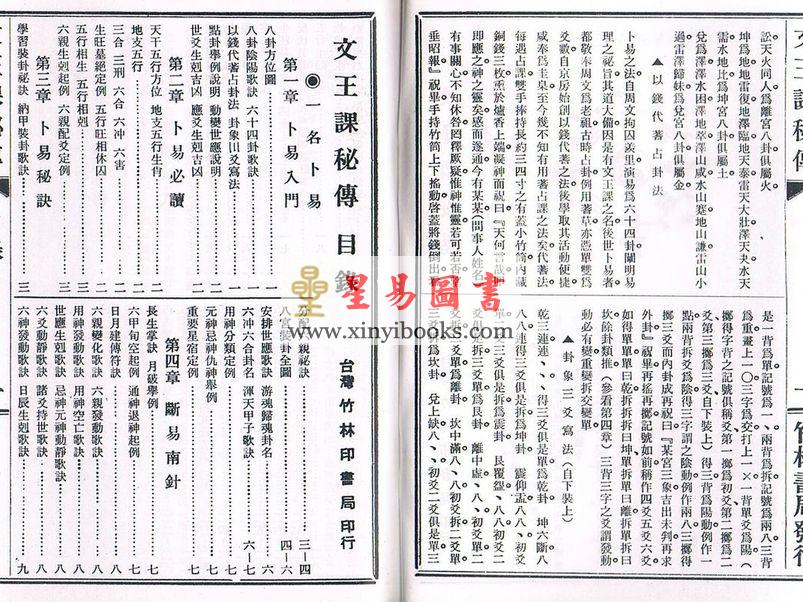 訟天火同人爲離宮八卦俱屬火
坤爲地地雷復地澤臨地天泰雷天大壯澤天夬水天
需水地比爲坤宮八卦俱屬土
兌爲澤澤水困澤地萃澤山咸水山蹇地山謙雷山小
過雷澤歸妹爲兌宮八卦俱屬金
▲以錢代蓍占卦法
卜易之法自周文拘囚羑里演易爲六十四卦闡明易
理之祕旨其道大備因是有文王課之名後世卜易者
都敬奉周文爲老祖古時占卦例用蓍草亦憑單雙爲
爻數自京房始創以錢代蓍之法後學取其活動便捷
咸奉爲圭臬至今幾不知有用蓍占課之法矣代蓍法
每遇占課雙手捧持長約三四寸之有蓋小竹筒內藏
銅錢三枚熏於爐香上端凝神而祝曰『天何言哉叩
即應之神之靈矣感而遂通今有某某(問事人姓名)
有事關心不知休咎罔釋厥疑惟神惟靈若可若否望
垂昭報』祝畢手持竹筒上下搖動啓蓋將錢倒出若
是一背爲單記號爲一、兩背爲拆記號爲兩八三背
爲重畫上一〇三字爲交打上一×一背單爻爲陽(
擲得字背之記號俱稱爻第一擲爲初爻第二擲爲二
爻第三擲爲三爻自下裝上)得三背爲陽動例作一
點兩背拆爻爲陰得三字謂之陰動例作兩八三擲得
擲三爻而內卦成再祝曰『某宮三象吉凶未判再求
外卦』祝畢再搖再擲記號如前稱作四爻五爻六爻
如得單單單曰乾拆拆拆曰坤單拆單曰離拆單拆曰
坎餘卦類推(參看第四章)三背三字之爻謂發動
動必有變重變拆交變單
▲卦象三爻寫法(自下裝上)
文王課秘傳目錄
◉一名卜易
台灣竹林印書局印行
第一章 卜易入門
八卦方位圖……一
八卦陰陽歌訣 六十四卦歌訣……一
以錢代蓍占卦法 卦象三爻寫法……一
點卦舉例說明 動變世應說明……二
世爻生剋吉凶 應爻生剋吉凶……二
第二章 卜易必讀
天干五行方位 地支五行生肖……二
地支五行……二
三合 三刑 六合 六冲 六害……二
生旺墓絕定例 五行旺相休囚……二
五行相生 五行相剋……二
六親生剋起例 六親配爻定例……三
第三章 卜易秘訣
學習裝卦秘訣 納甲裝卦歌訣……三
分配六親秘訣……三–四
八宮裝卦全圖……四–六
安排世應歌訣 游魂歸魂卦名……六
六冲六合卦名 渾天甲子歌訣……六–七
用神分類定例……七
元神忌神仇神舉例……七
重要星宿定例……七
長生掌訣 月破舉例……七
第四章 斷易南針
六甲旬空起例 通神退神起例……七
日月建傳符訣……七
六親變化歌訣 六親發動歌訣……八
用神發動歌訣 用神空亡歌訣……八
世應生剋歌訣 忌神元神動靜歌訣……八
六爻動靜歌訣 諸爻持世歌訣……八
六神發動歌訣 日辰生剋歌訣……九
星易圖書
www.xinyibooks.com